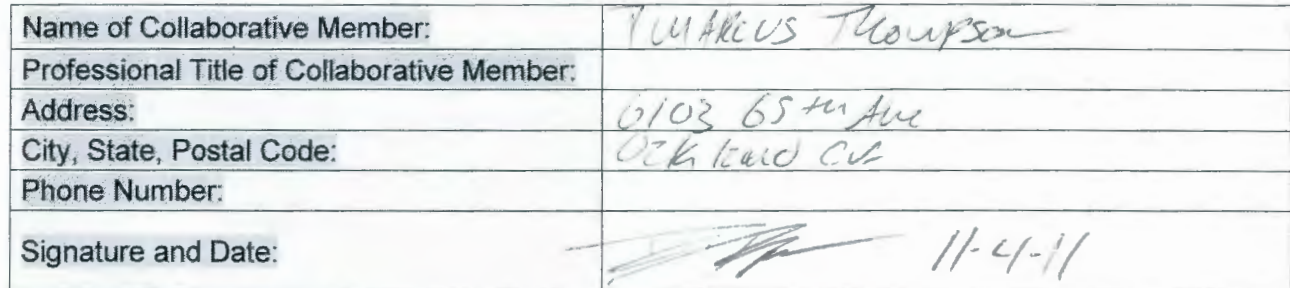 Name of Collaborative Member: Thompson
Professional Title of Collaborative Member:
Address: 6103 65th Ave
City, State, Postal Code: Oakland CA
Phone Number:
Signature and Date: 11-4-11